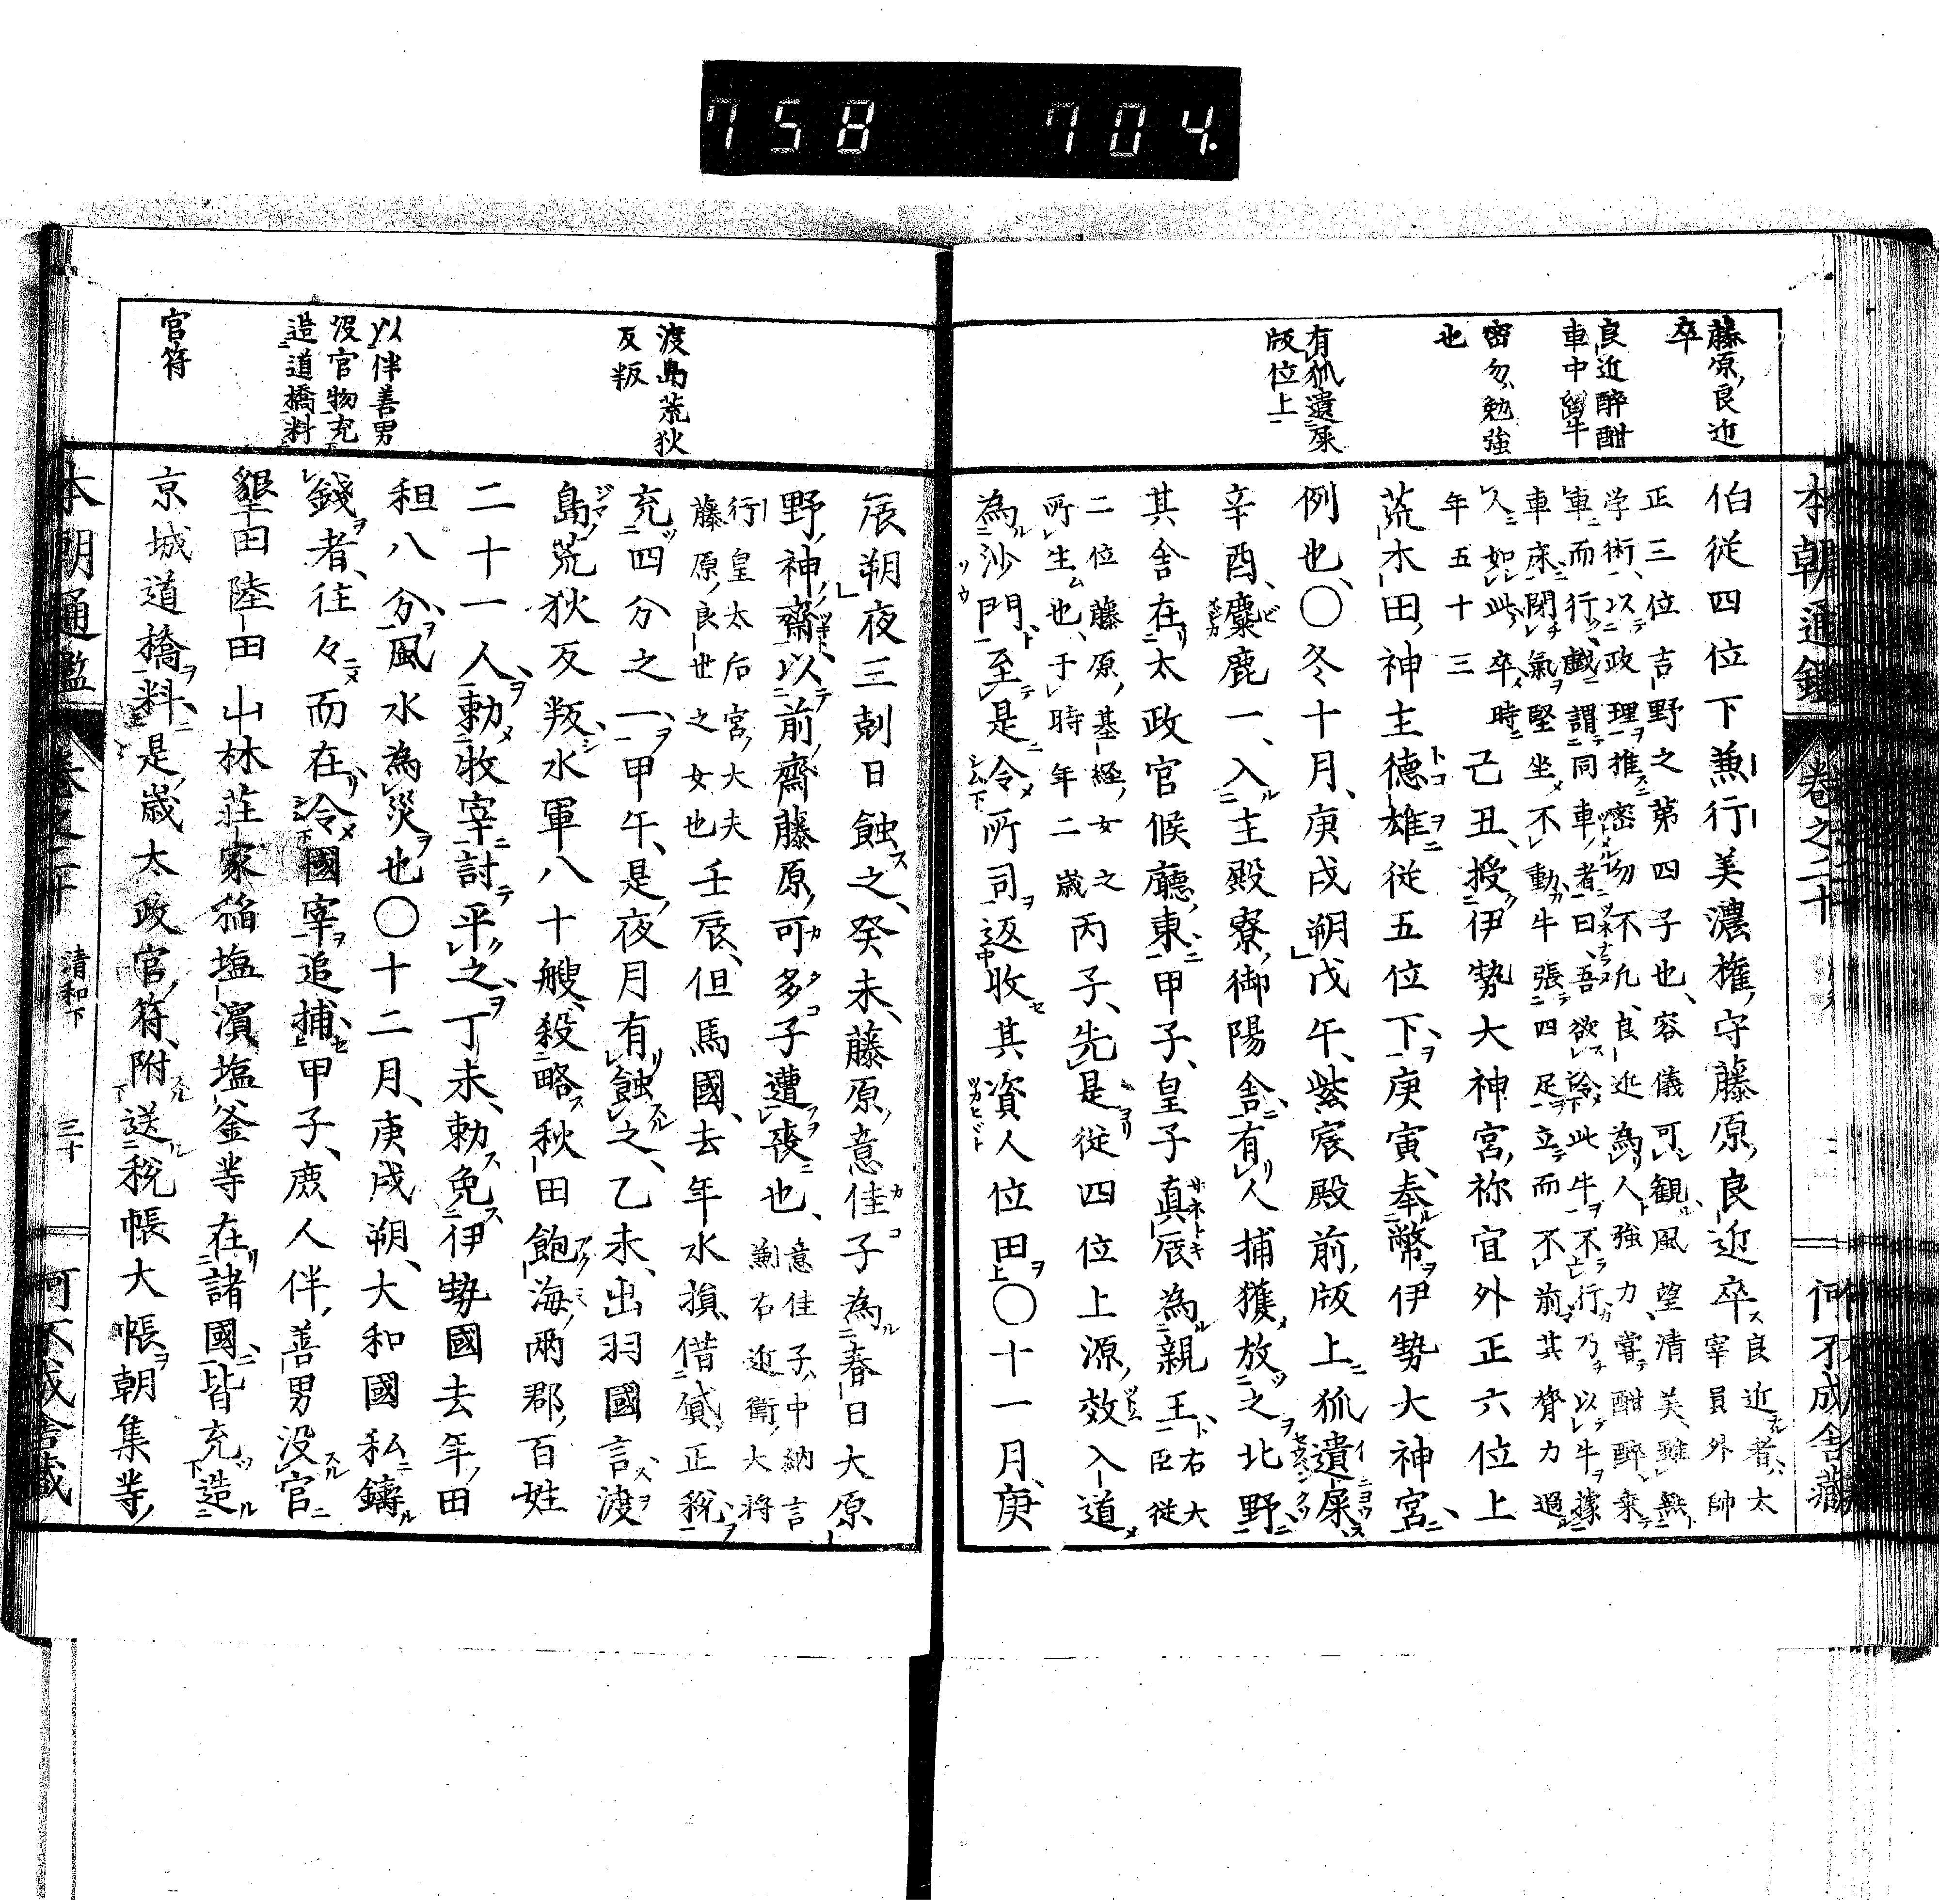 758 704.
本朝通鑑 卷之二十 何不成舍藏
藤原良近
卒
良近醉酣
車中
密勿勉強
也
有狐遺屎
版位上
伯從四位下兼行美濃權守藤原良近卒
良近者太
宰員外帥
正三位吉野之第四子也容儀可観風望清美雖無
学術以政理推密勿不允良近為人強力嘗酣醉乗
車而行戯謂同車者曰吾欲令此牛不行乃以牛據
車床閉氣堅坐不動牛張四足立而不前其膂力過
人如此卒時
年五十三
己丑授伊勢大神宮祢宜外正六位上
荒木田神主德雄從五位下庚寅奉幣伊勢大神宮
例也〇冬十月庚戌朔戊午紫宸殿前版上狐遺屎
辛酉麋鹿一入主殿寮御陽舎有人捕獲放之北野
其舍在太政官候廳東甲子皇子真辰為親王
右大
臣從
二位藤原基経女之
所生也于時年二歳
丙子先是從四位上源效入道
為沙門至是令所司返收其資人位田〇十一月庚
渡島荒狄
反叛
以伴善男
没官物充
造道橋料
官符
辰朔夜三剋日蝕之癸未藤原意佳子為春日大原
野神齋以前齋藤原可多子遭喪也
意佳子中納言
兼右近衛大將
行皇太后宮大夫
藤原良世之女也
壬辰但馬國去年水損借貸正税
充四分之一甲午是夜月有蝕之乙未出羽國言渡
島荒狄反叛水軍八十艘殺略秋田飽海兩郡百姓
二十一人勅牧宰討平之丁未勅免伊勢國去年田
租八分風水為災也〇十二月庚戌朔大和國私鑄
錢者往々而在令國宰追捕甲子庶人伴善男没官
墾田陸田山林荘家稲塩濱塩釜等在諸國皆充造
京城道橋料是歳太政官符附送税帳大帳朝集等
本朝通鑑 卷之二十 清和下 三十 何不成舍藏